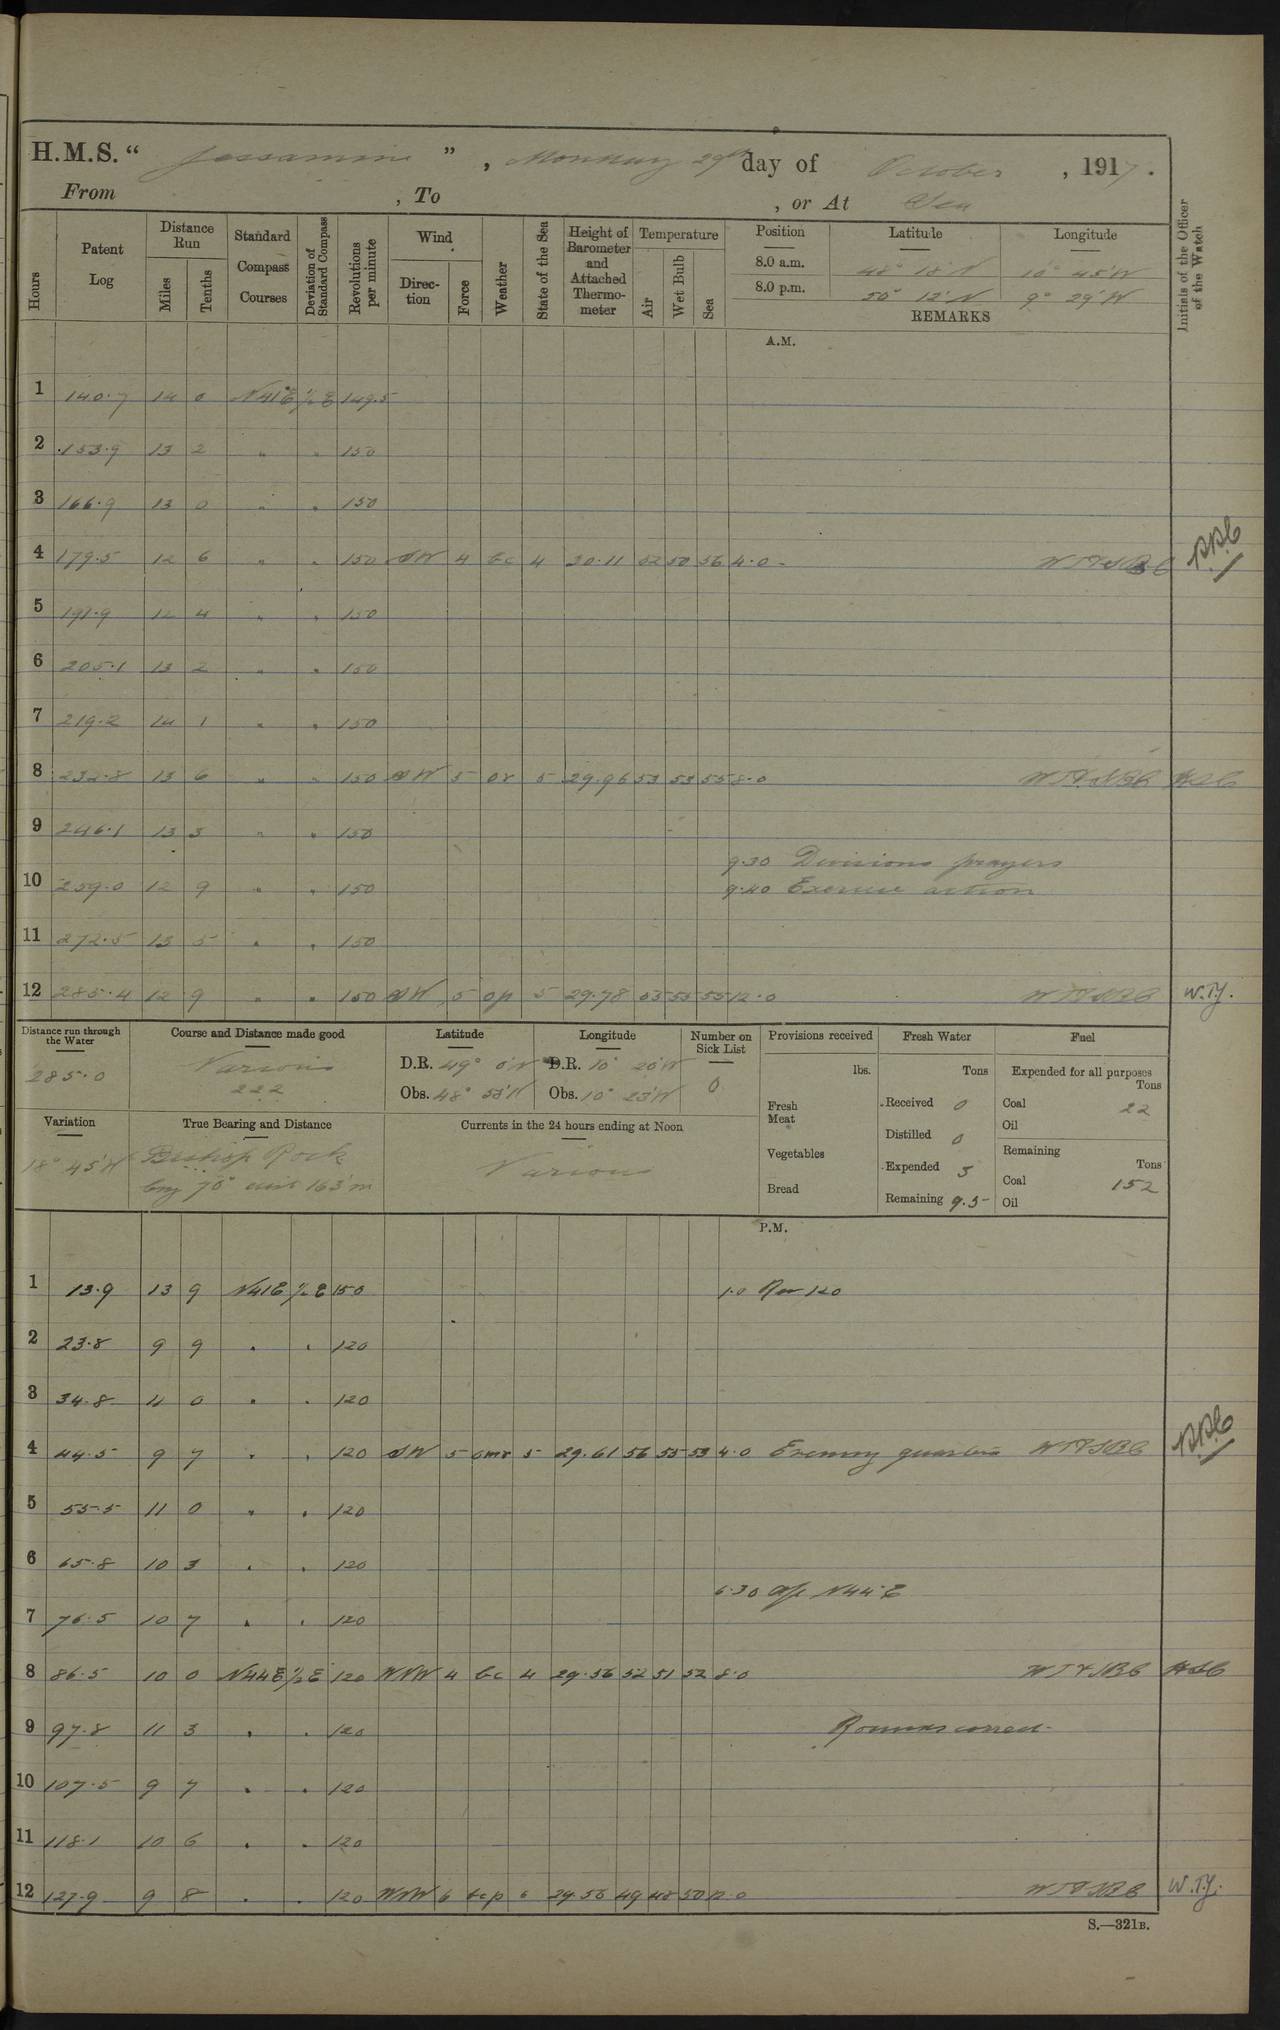 H.M.S. “ Jessamine ” , Monday 29th day of October , 1917.
From , To , or At Sea
Hours
Patent Log
Distance Run
Miles
Tenths
Standard Compass Courses
Deviation of Standard Compass
Revolutions per minute
Wind
Direction
Force
Weather
State of the Sea
Height of Barometer and Attached Thermometer
Temperature
Air
Wet Bulb
Sea
Position Latitude Longitude
8.0 a.m. 48° 18' N 10° 45' W
8.0 p.m. 50° 12' N 9° 29' W
REMARKS
Initials of the Officer of the Watch
A.M.
1 140.7 14 0 N41E ½E 149.5
2 153.9 13 2 " " 150
3 166.9 13 0 " " 150
4 179.5 12 6 " " 150 SW 4 bc 4 30.11 52 50 56 4.0
5 191.9 12 4 " " 150
6 205.1 13 2 " " 150
7 219.2 14 1 " " 150
8 232.8 13 6 " " 150 SW 5 or 5 29.96 53 53 55 8.0
9 246.1 13 3 " " 150
9.30 Divisions prayers
10 259.0 12 9 " " 150 9.40 Exercise action
11 272.5 13 5 " " 150
12 285.4 12 9 " " 150 SW 5 op 5 29.78 55 55 12.0 W.T.J.
Distance run through the Water
285.0
Course and Distance made good
Various
222
Latitude
D.R. 49° 0' N
Obs. 48° 58' N
Longitude
D.R. 10° 20' W
Obs. 10° 23' W
Number on Sick List
0
Provisions received
lbs.
Fresh Meat
Vegetables
Bread
Fresh Water
Tons
Received 0
Distilled 0
Expended 5
Remaining 9.5
Fuel
Expended for all purposes
Tons
Coal 22
Oil
Remaining
Tons
Coal 152
Oil
Variation
18° 45' W
True Bearing and Distance
Bishop Rock
brg 70° dist 163 m
Currents in the 24 hours ending at Noon
Various
P.M.
1 13.9 13 9 N41E ½E 150 1.0 Rev 120
2 23.8 9 9 " " 120
3 34.8 11 0 " " 120
4 44.5 9 7 " " 120 SW 5 omr 5 29.61 56 55 53 4.0 Evening quarters
5 55.5 11 0 " " 120
6 65.8 10 3 " " 120
6.30 a/c N44°E
7 76.5 10 7 " " 120
8 86.5 10 0 N44E ½E 120 WNW 4 bc 4 29.56 52 51 52 8.0
9 97.8 11 3 " " 120 Rounds correct
10 107.5 9 7 " " 120
11 118.1 10 6 " " 120
12 127.9 9 8 " " 120 WNW 6 bcp 6 29.58 49 48 50 12.0 W.T.J.
S.—321B.